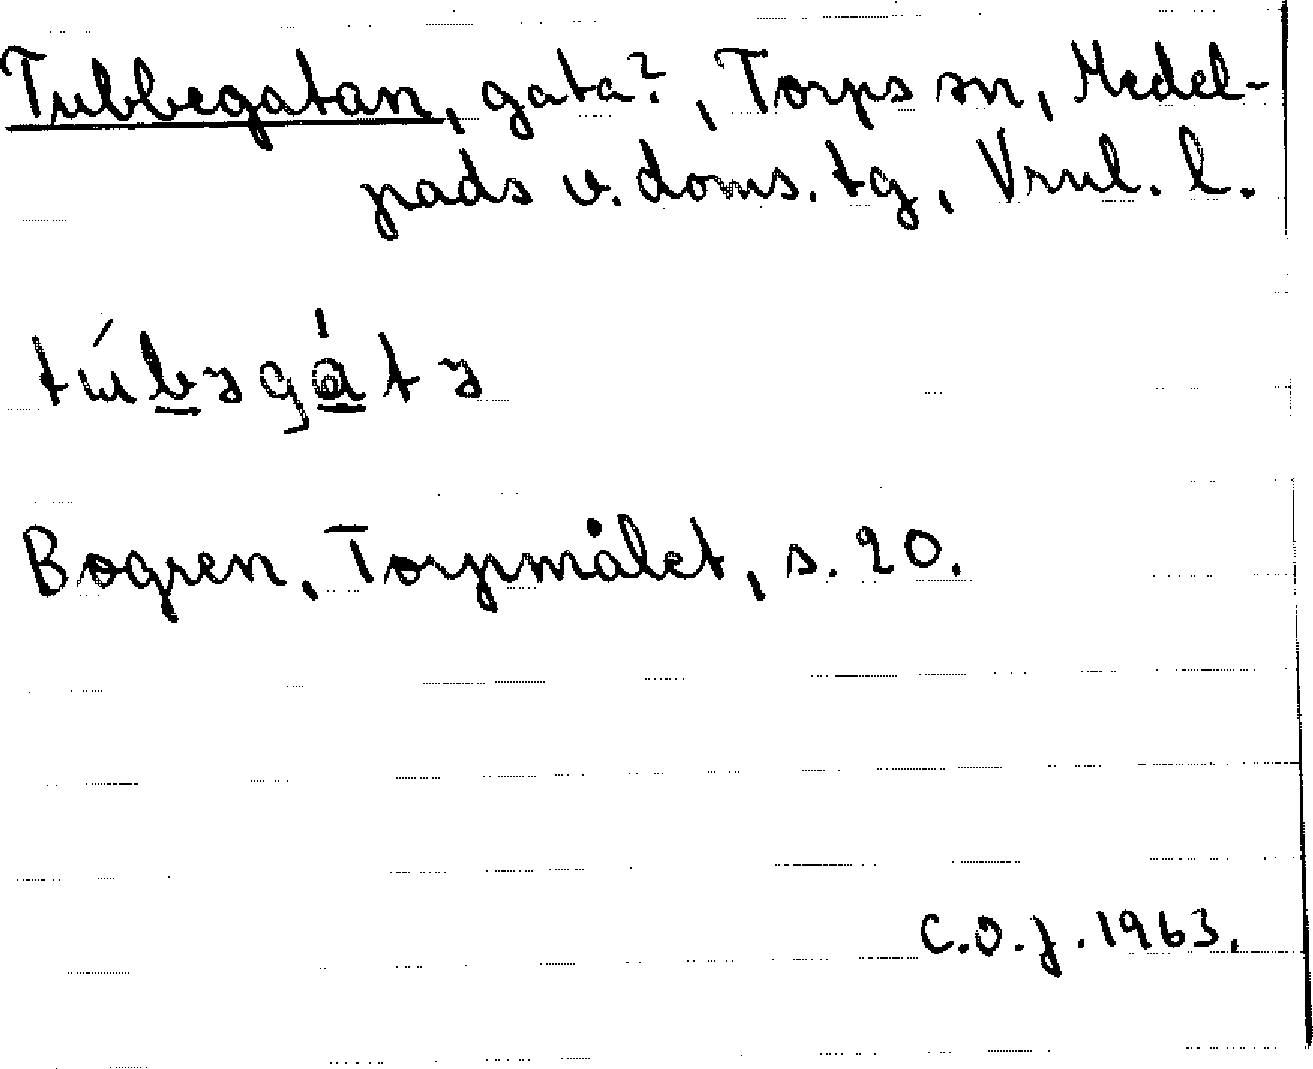 Tubbegatan, gata?, Torps sn, Medel-
pads v. doms. tg, Vrnl. l.
Bogren, Torpmålet, s. 20.
C.O.J. 1963.